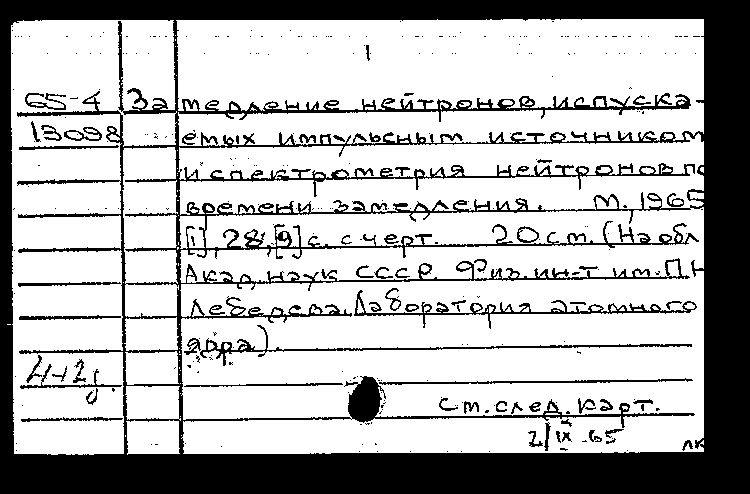 1
65-4 Замедление нейтронов, испуска-
13098 емых импульсным источником
и спектрометрия нейтронов по
времени замедления. М., 1965
[1], 28, [9] с. с черт. 20 см. (На обл
Акад. наук СССР. Физ. ин-т им. П.Н
Лебедева. Лаборатория атомного
ядра).
См. след. карт.
2/IX-65
лк